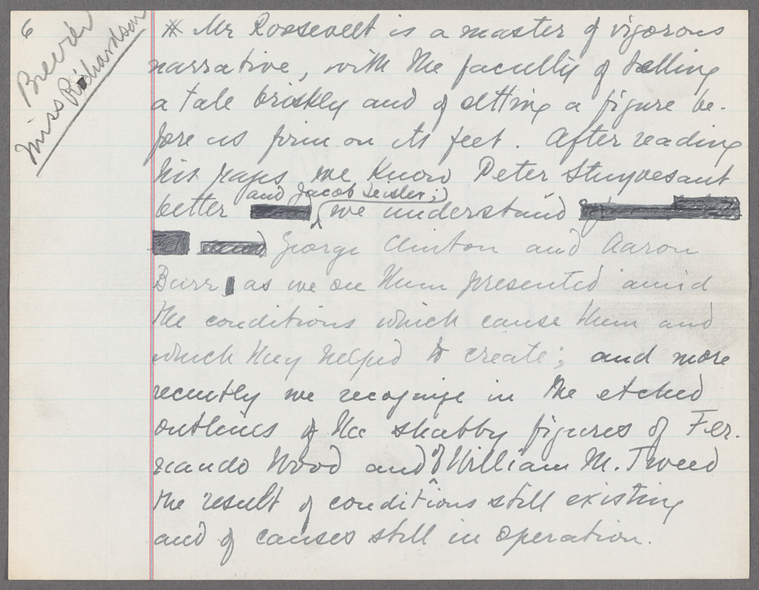 6
Brevier
Miss Richardson
# Mr Roosevelt is a master of vigorous
narrative, with the faculty of telling
a tale briskly and of setting a figure be-
fore us firm on its feet. After reading
his pages we know Peter Stuyvesant
and Jacob Leisler;
better we understand
George Clinton and Aaron
Burr, as we see them presented amid
the conditions which cause them and
which they helped to create; and more
recently we recognize in the etched
outlines of the shabby figures of Fer-
nando Wood and of William M. Tweed
the result of conditions still existing
and of causes still in operation.